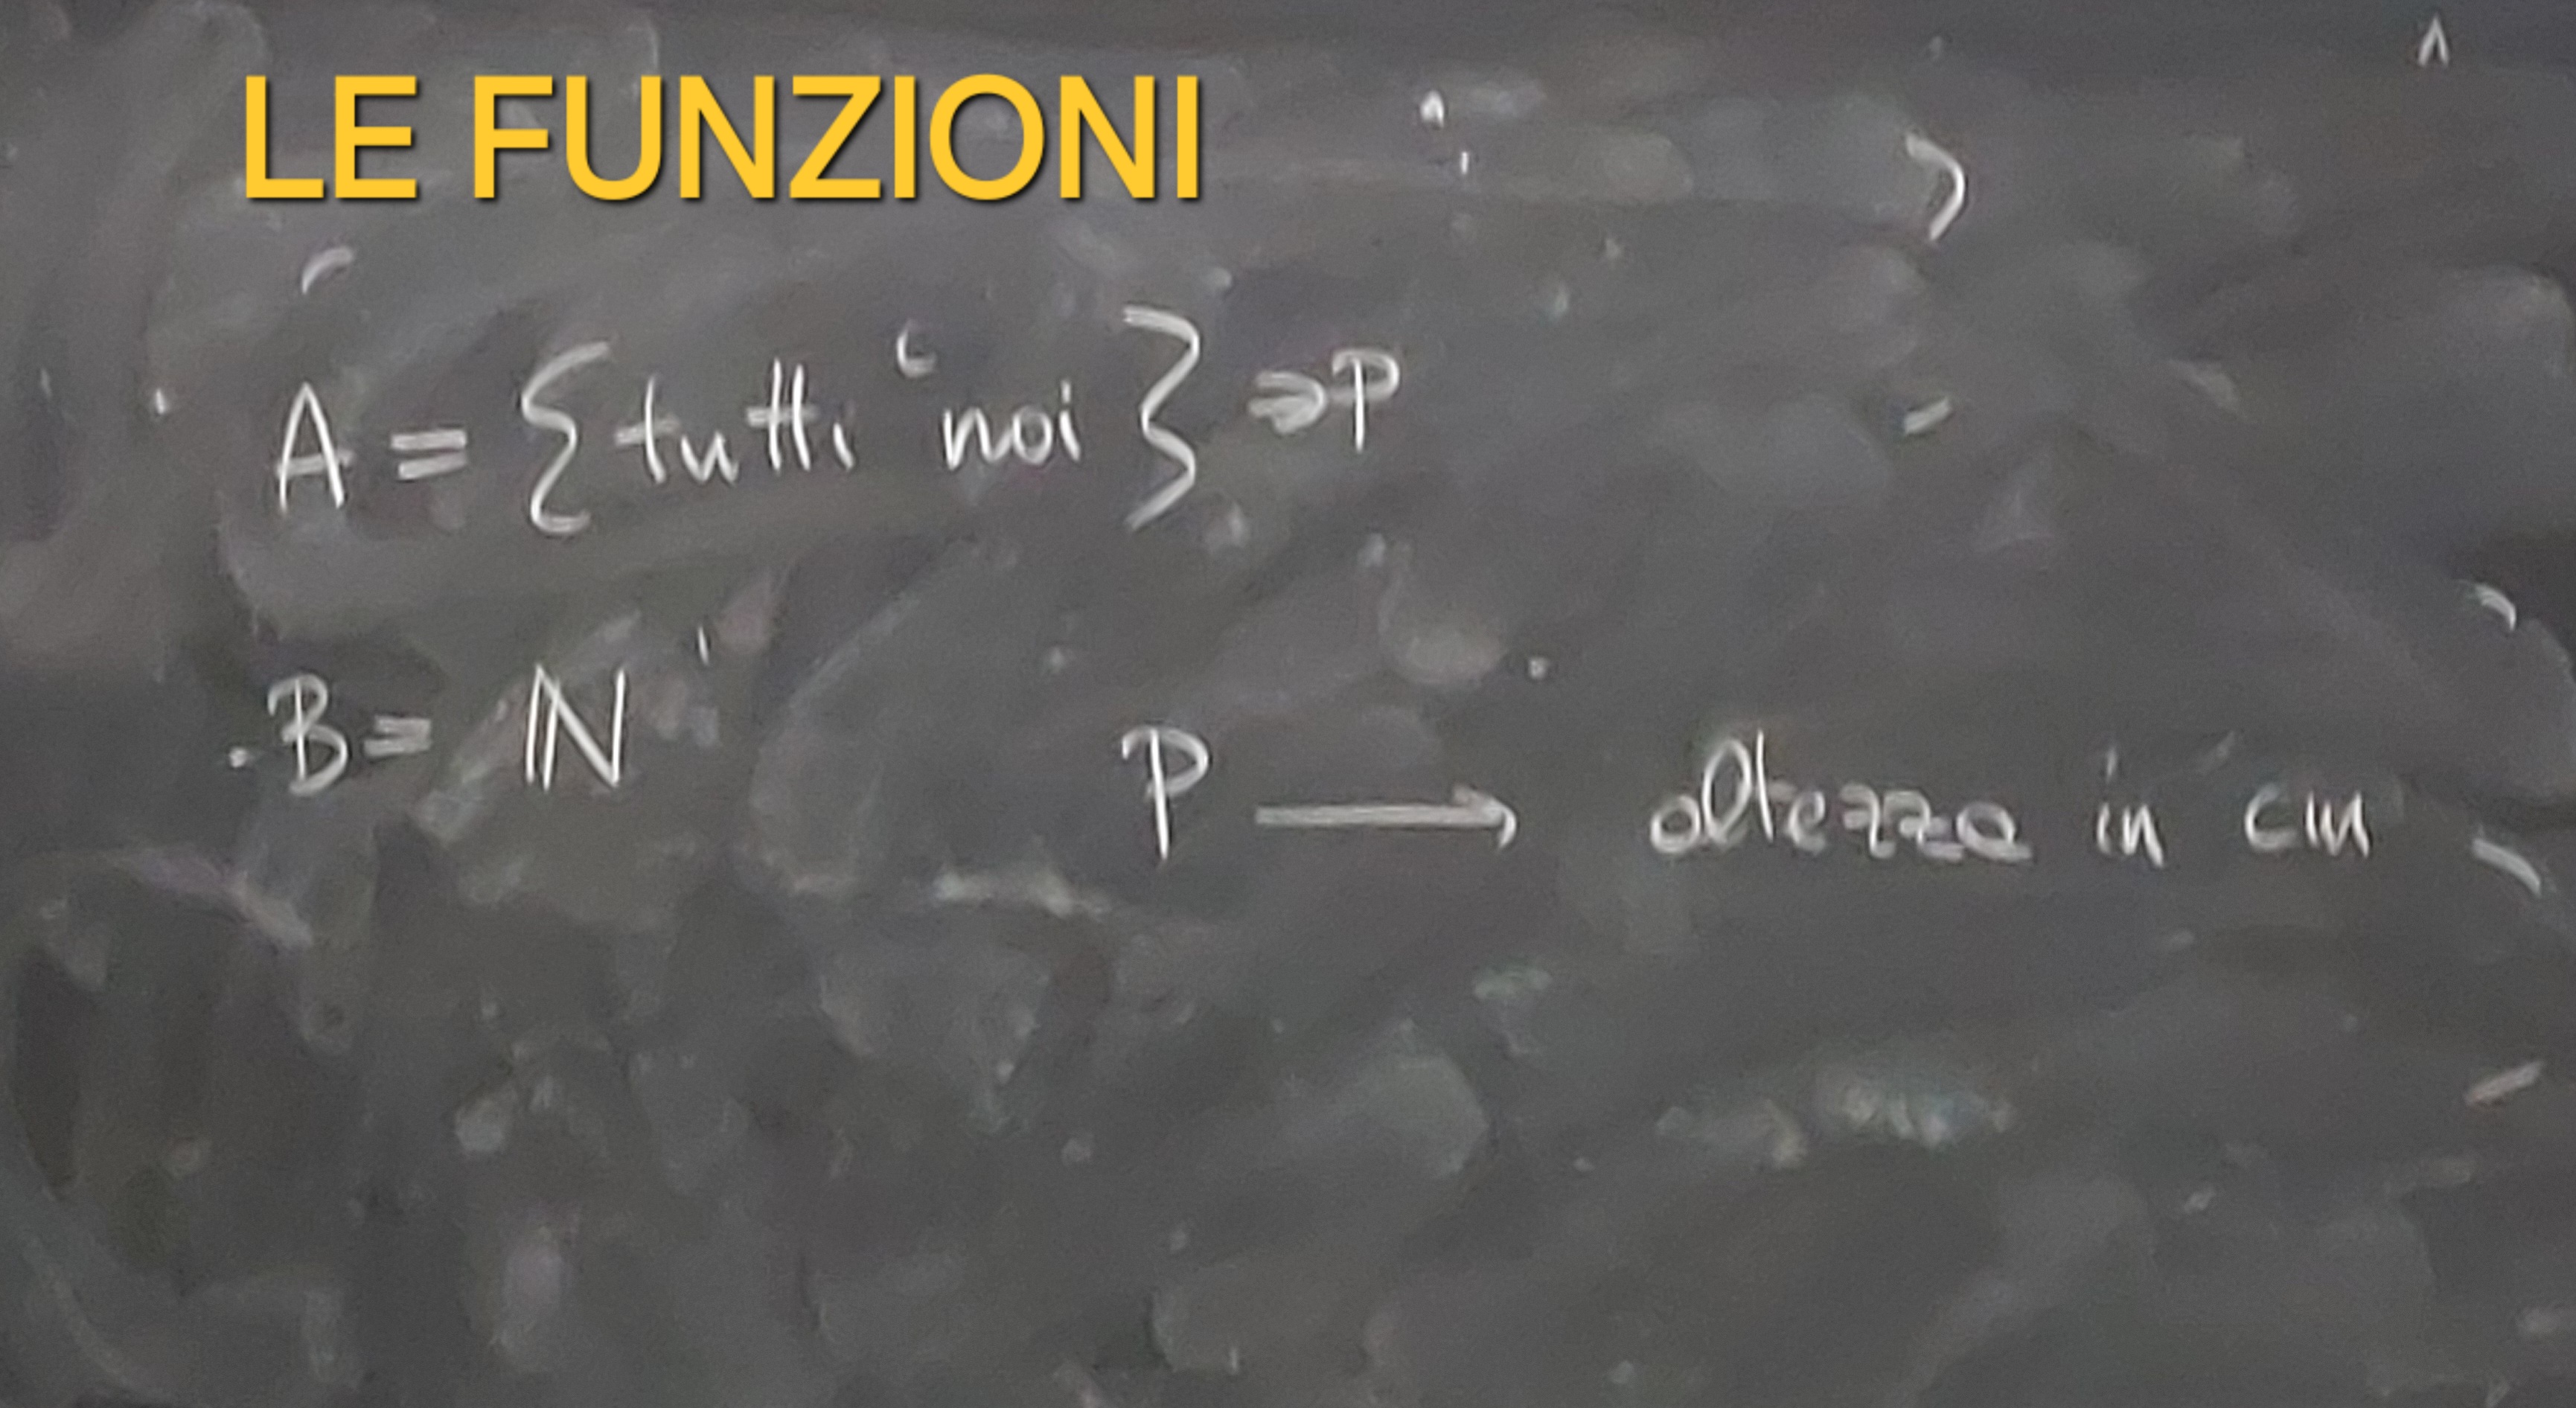 LE FUNZIONI
A = { tutti noi } ∋ P
B = ℕ
P → altezza in cm